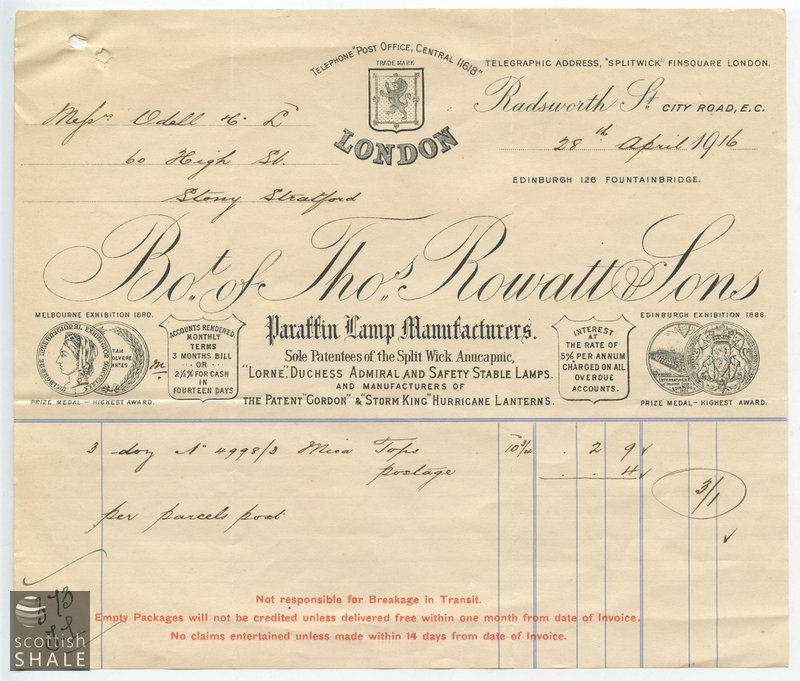 TELEPHONE "POST OFFICE, CENTRAL 11618"
TRADE MARK
LONDON
TELEGRAPHIC ADDRESS, "SPLITWICK" FINSQUARE LONDON.
Radsworth St. CITY ROAD, E.C.
28th April 1916
EDINBURGH 126 FOUNTAINBRIDGE.
Messrs Odell & Co
60 High St.
Stony Stratford
Bot. of Thos. Rowatt & Sons
MELBOURNE EXHIBITION 1880.
MELBOURNE INTERNATIONAL EXHIBITION
PRIZE MEDAL – HIGHEST AWARD.
ACCOUNTS RENDERED
MONTHLY
TERMS
3 MONTHS BILL
OR
2½% FOR CASH
IN
FOURTEEN DAYS
Paraffin Lamp Manufacturers.
Sole Patentees of the Split Wick Anucapnic,
"LORNE", DUCHESS, ADMIRAL AND SAFETY STABLE LAMPS.
AND MANUFACTURERS OF
THE PATENT "GORDON" & "STORM KING" HURRICANE LANTERNS.
INTEREST
AT
THE RATE OF
5% PER ANNUM
CHARGED ON ALL
OVERDUE
ACCOUNTS.
EDINBURGH EXHIBITION 1886.
PRIZE MEDAL – HIGHEST AWARD.
3 doz No 4998/3 Mica Tops 10 3/4 . 2 9
postage . . 4
3/1
per parcels post
Not responsible for Breakage in Transit.
Empty Packages will not be credited unless delivered free within one month from date of Invoice.
No claims entertained unless made within 14 days from date of Invoice.
scottish
SHALE